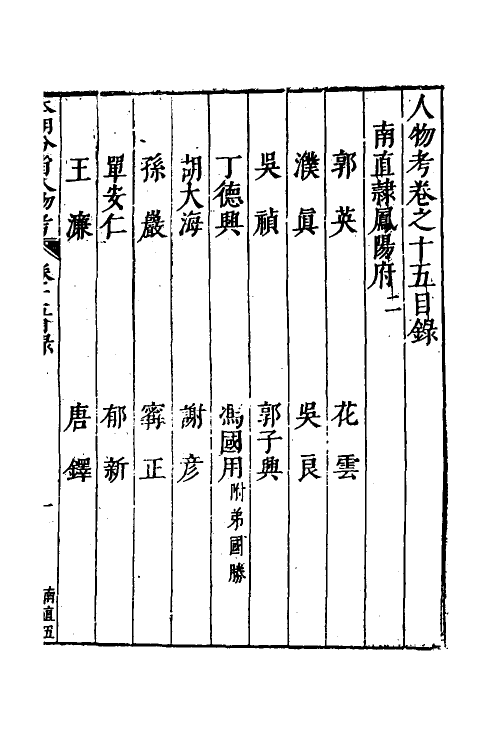 人物考卷之十五目錄
南直隷鳳陽府二
郭英　花雲
濮真　吳良
吳禎　郭子興
丁德興　馮國用附弟國勝
胡大海　謝彥
孫巖　甯正
單安仁　郁新
王濂　唐鐸
本朝分省人物考　卷十五目錄　一　南直五